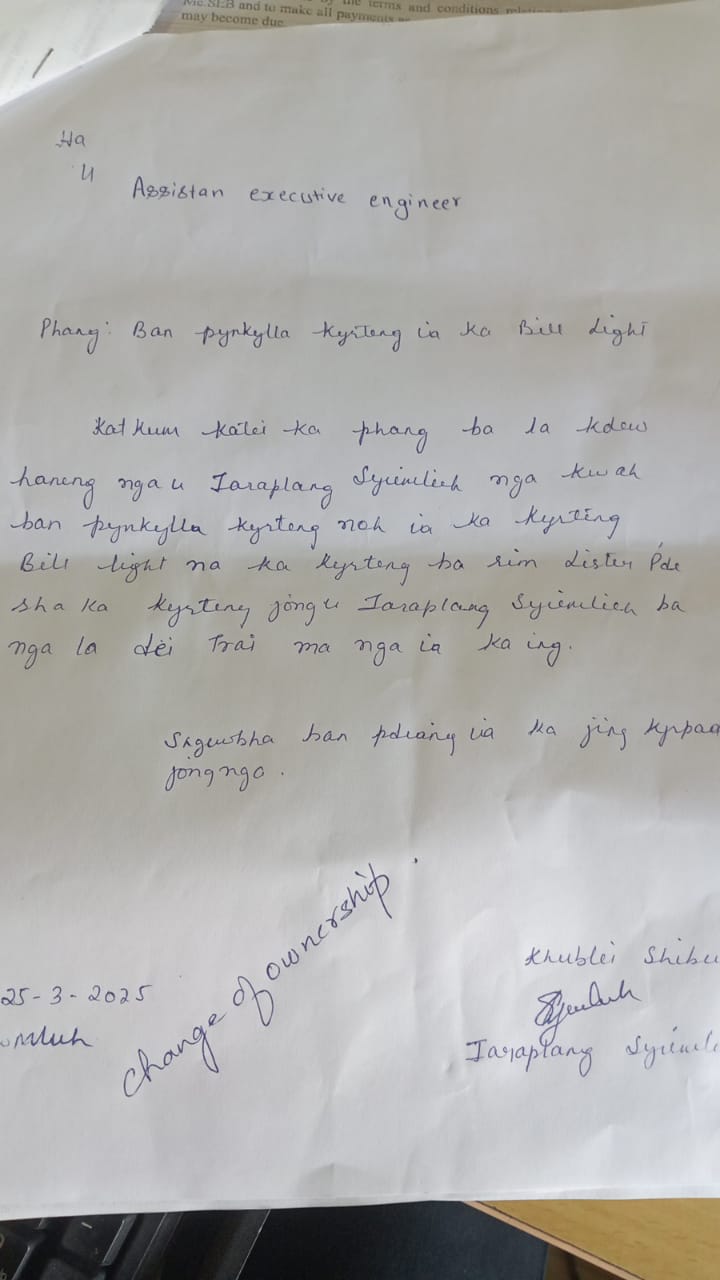 the terms and conditions
MeSEB and to make all payments
may become due.
Ha
U
Assistan executive engineer
Phang: Ban pynkylla kyrteng ia ka Bill Light
Kat kum katei ka phang ba la kdew
haneng nga u Iaraplang Syiemlieh nga kwah
ban pynkylla kyrteng noh ia ka kyrteng
Bill light na ka kyrteng ba rim Lister Pde
sha ka kyrteng jong u Iaraplang Syiemlieh ba
nga la dei Trai ma nga ia ka ing.
Sngewbha ban pdiang ia ka jing kyrpad
jong nga.
change of ownership.
Khublei Shibu
25-3-2025
Iaraplang Syieml